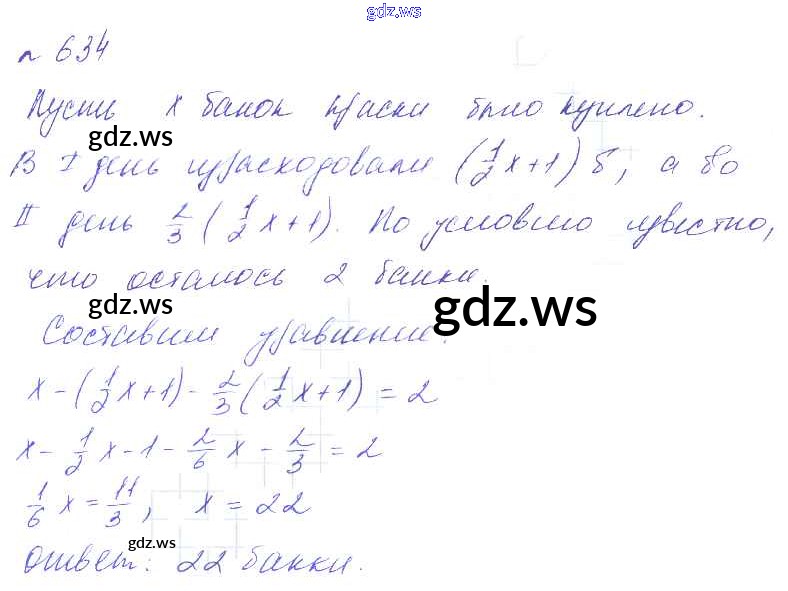 gdz.ws
n 634
Пусть x банок краски было куплено.
gdz.ws
В I день израсходовали (1/2 x + 1) б, а во
II день 2/3 (1/2 x + 1). По условию известно,
что осталось 2 банки.
gdz.ws
gdz.ws
Составим уравнение.
x - (1/2 x + 1) - 2/3 (1/2 x + 1) = 2
x - 1/2 x - 1 - 2/6 x - 2/3 = 2
1/6 x = 11/3, x = 22
gdz.ws
Ответ: 22 банки.